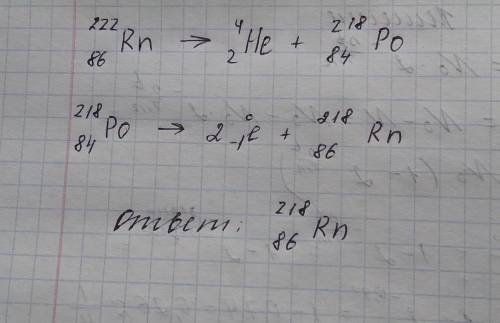 ²²²₈₆Rn → ⁴₂He + ²¹⁸₈₄Po
²¹⁸₈₄Po → 2 ⁰₋₁e + ²¹⁸₈₆Rn
ответ: ²¹⁸₈₆Rn